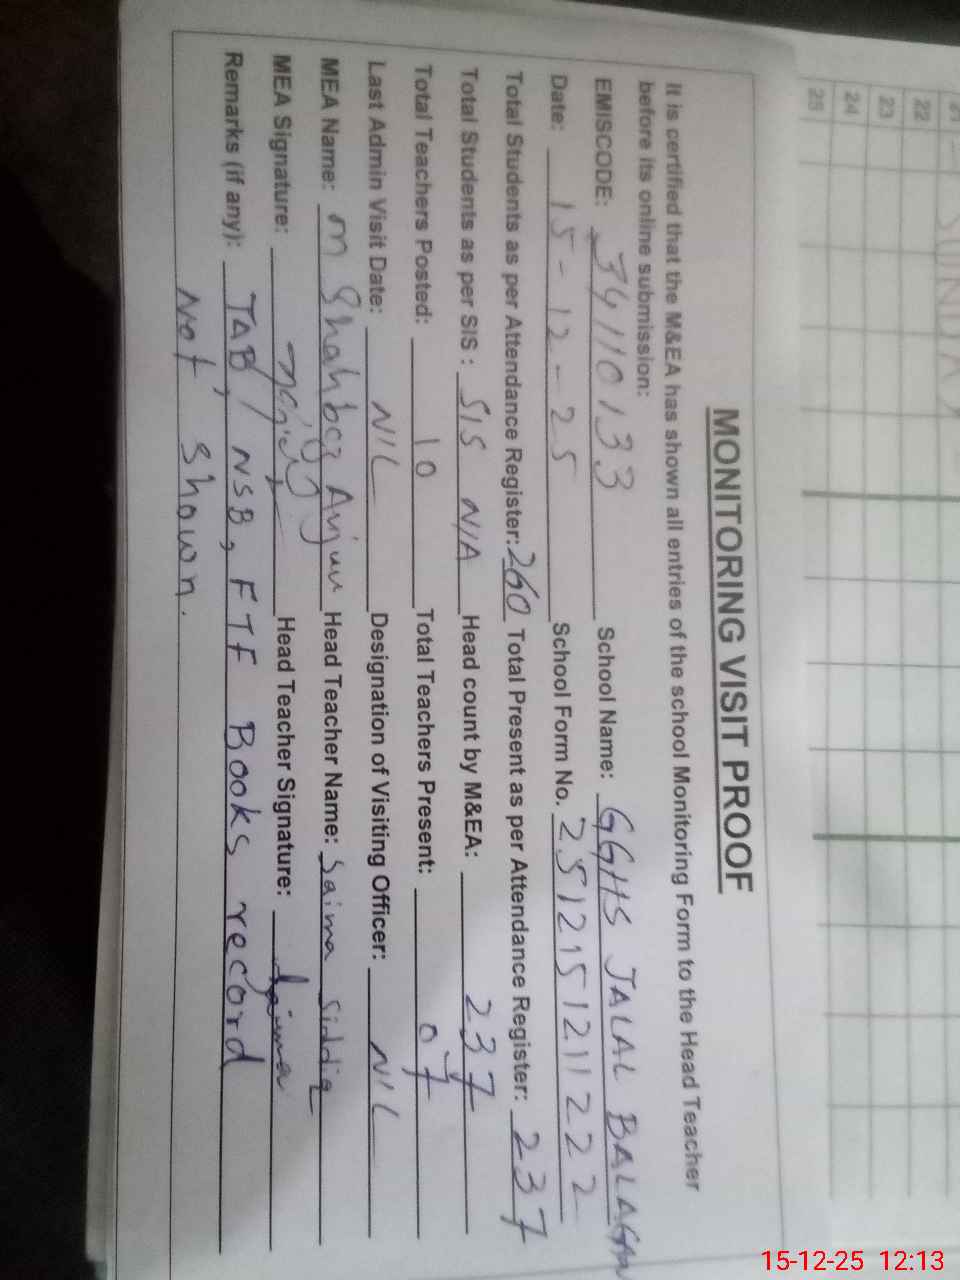 21
22
23
24
25
SUNDAY
MONITORING VISIT PROOF
It is certified that the M&EA has shown all entries of the school Monitoring Form to the Head Teacher
before its online submission:
EMISCODE: 34110133 School Name: GGHS JALAL BALAGAN
Date: 15-12-25 School Form No. 251215121122 2
Total Students as per Attendance Register: 260 Total Present as per Attendance Register: 237
Total Students as per SIS : SIS N/A Head count by M&EA: 237
Total Teachers Posted: 10 Total Teachers Present: 07
Last Admin Visit Date: NIL Designation of Visiting Officer: NIL
MEA Name: M Shahbaz Anjum Head Teacher Name: Saima Siddiq
MEA Signature: Head Teacher Signature: Saima
Remarks (if any): TAB, NSB, FTF Books record
Not shown.
15-12-25 12:13